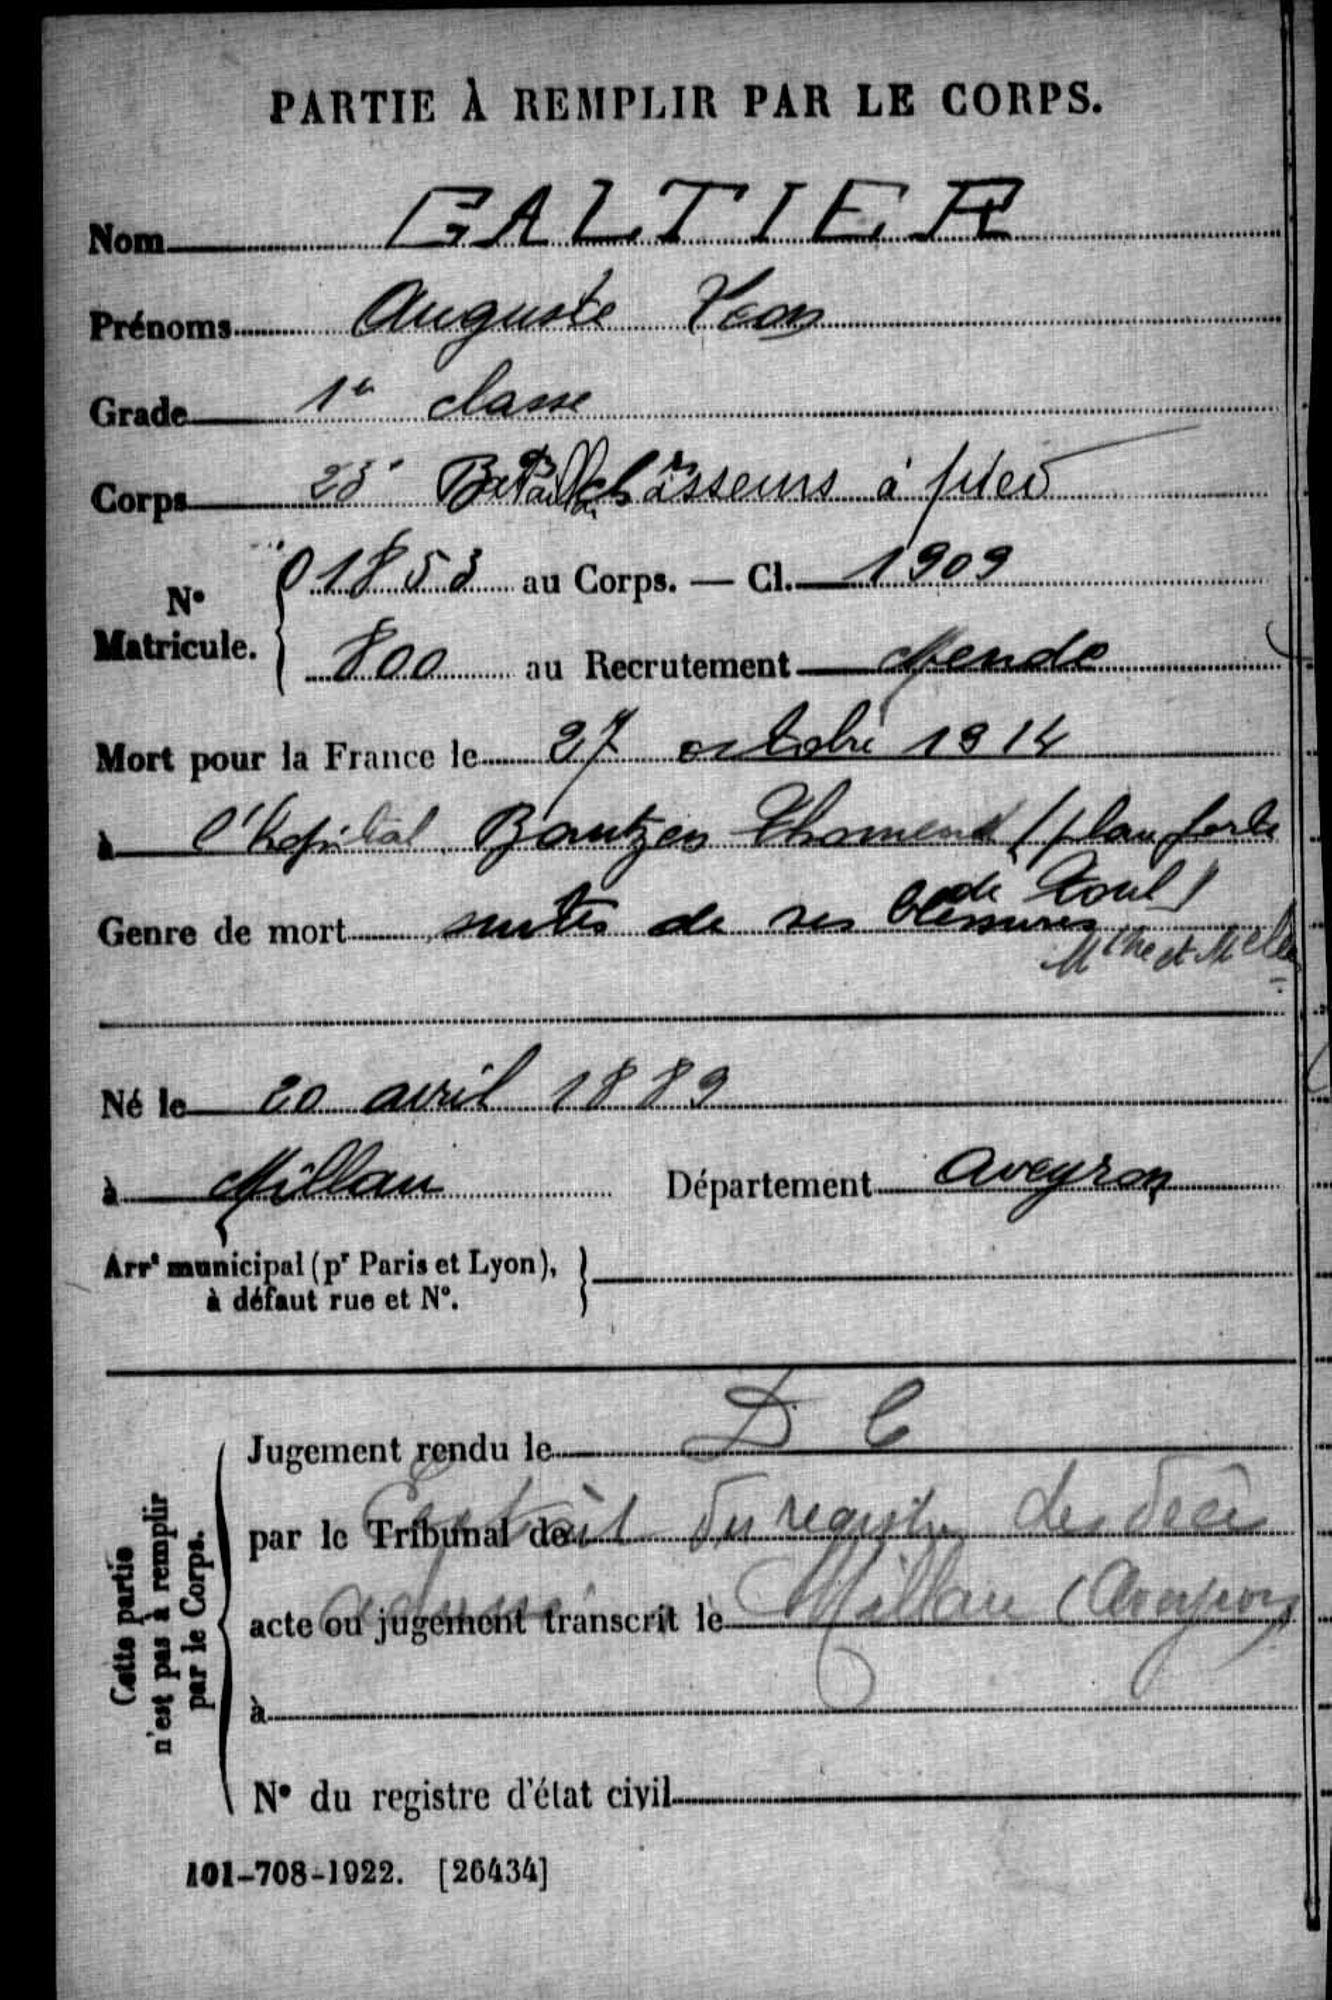 PARTIE À REMPLIR PAR LE CORPS.
Nom GALTIER
Prénoms Auguste Léon
Grade 1e classe
Corps 23e chasseurs à pied
N° Matricule. 01853 au Corps. — Cl. 1909
800 au Recrutement Mende
Mort pour la France le 27 octobre 1914
à l'hopital Bautzen (place forte
de Toul)
Genre de mort suites de ses blessures
Mthe et Melle
Né le 20 avril 1889
à Millau Département Aveyron
Arrt municipal (pr Paris et Lyon),
à défaut rue et N°.
Cette partie
n'est pas à remplir
par le Corps.
Jugement rendu le D C
par le Tribunal de Extrait du registre des décès
acte ou jugement transcrit le adressé Millau (Aveyron)
à
N° du registre d'état civil
101-708-1922. [26434]